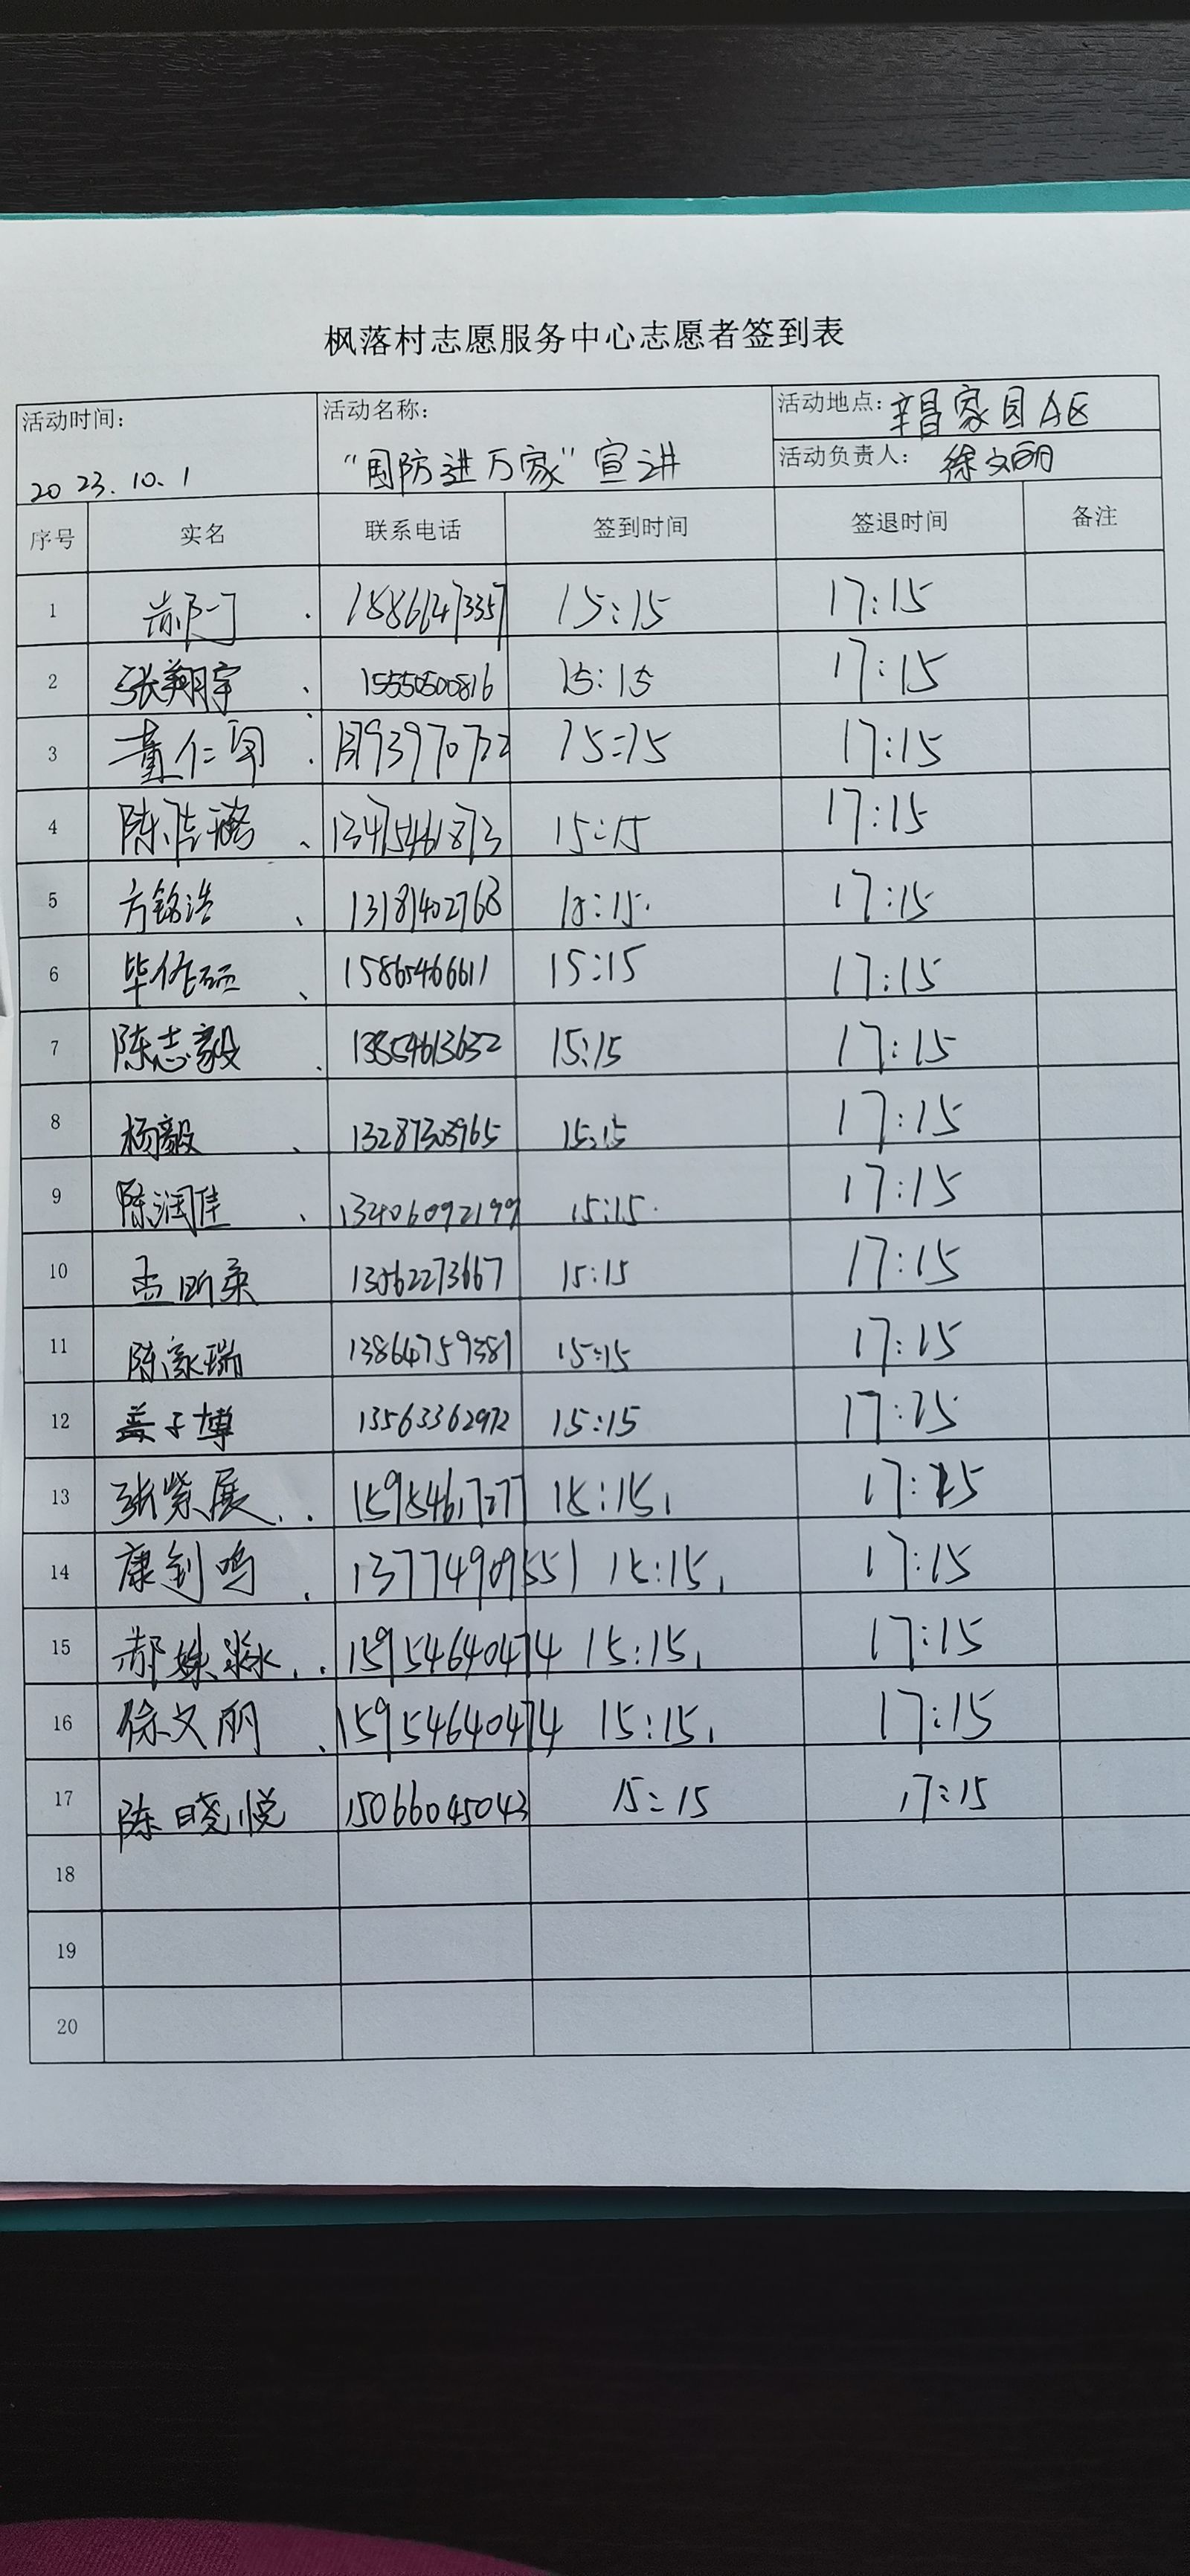 枫落村志愿服务中心志愿者签到表
活动时间： 活动名称： 活动地点：辛昌家园A区
2023.10.1 “国防进万家”宣讲 活动负责人：徐文丽
序号 实名 联系电话 签到时间 签退时间 备注
1 15:15 17:15
2 张翔宇 15550500816 15:15 17:15
3 董仁 15:15 17:15
4 陈 13475461873 15:15 17:15
5 方铭浩 15:15 17:15
6 毕 15865466611 15:15 17:15
7 陈志毅 13854613632 15:15 17:15
8 杨毅 13287303965 15:15 17:15
9 陈润佳 15:15 17:15
10 孟昕 15:15 17:15
11 陈家瑞 13864759381 15:15 17:15
12 盖子博 13563362972 15:15 17:15
13 张紫展 15:15 17:15
14 康钊鸣 15:15 17:15
15 郝姝淼 15954640474 15:15 17:15
16 徐文丽 15954640474 15:15 17:15
17 陈晓悦 15066045043 15:15 17:15
18
19
20